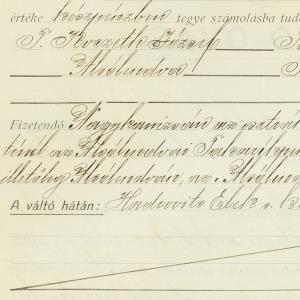 értéke készpénzben tegye számolásba tud
T. József
Alsólendva
Fizetendő Nagykanizsán az osztrák
az Alsólendvai Takarékpén
illetőleg Alsólendván, az Alsólend
A váltó hátán: Hadrovits Elek s. k.